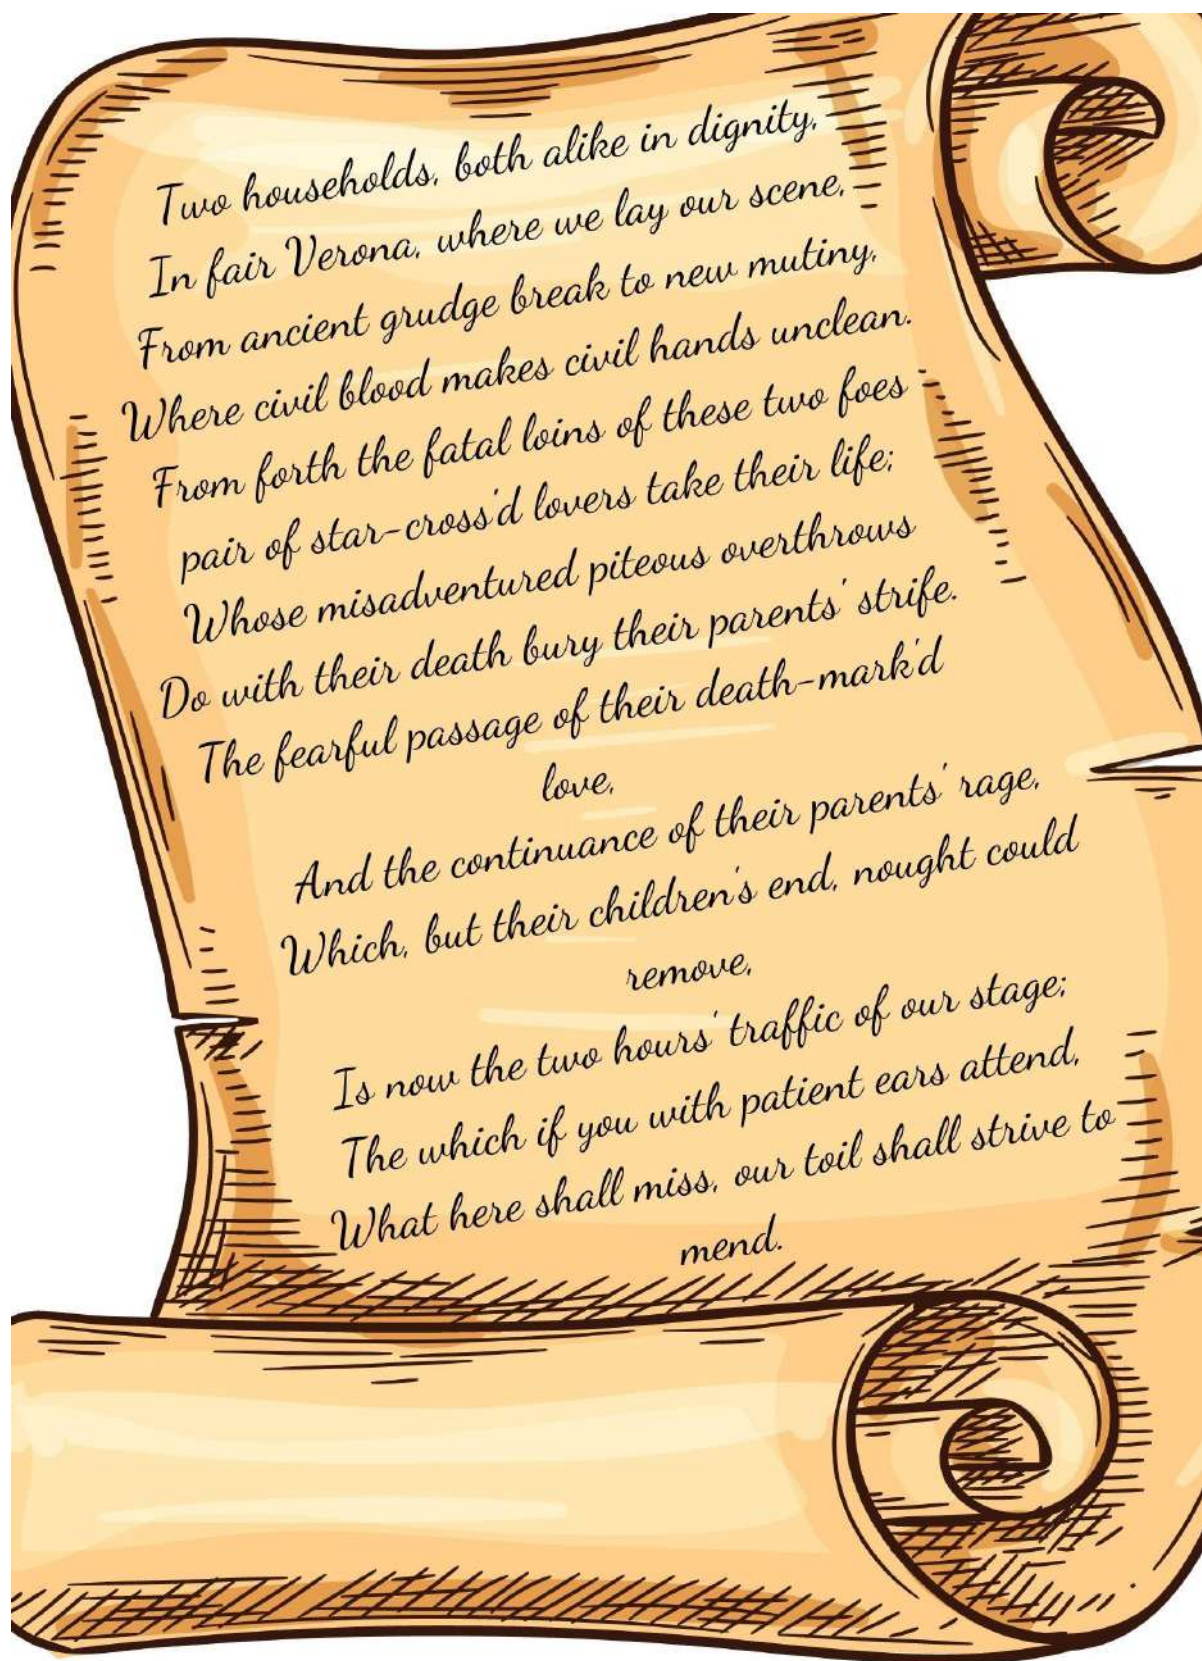 Two households, both alike in dignity,
In fair Verona, where we lay our scene,
From ancient grudge break to new mutiny,
Where civil blood makes civil hands unclean.
From forth the fatal loins of these two foes
pair of star-cross'd lovers take their life;
Whose misadventured piteous overthrows
Do with their death bury their parents' strife.
The fearful passage of their death-mark'd
love,
And the continuance of their parents' rage,
Which, but their children's end, nought could
remove,
Is now the two hours' traffic of our stage;
The which if you with patient ears attend,
What here shall miss, our toil shall strive to
mend.